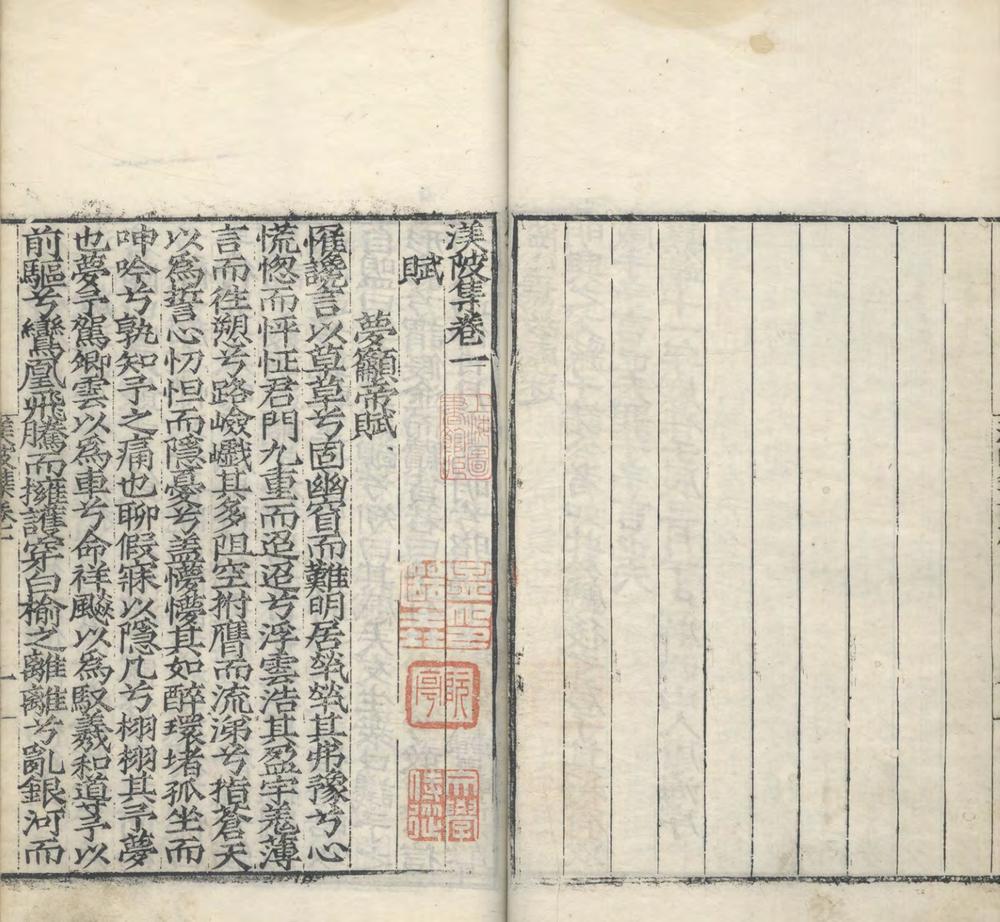 渼陂集卷一
賦
夢籲帝賦
罹讒言以草草兮固幽窅而難明居煢煢其弗豫兮心
慌惚而怦怔君門九重而迢迢兮浮雲浩其盈宇羗薄
言而往愬兮路嶮巇其多阻空拊膺而流涕兮指蒼天
以爲誓心忉怛而隱憂兮盖懜懜其如醉環堵孤坐而
呻吟兮孰知予之痛也聊假寐以隱几兮栩栩其予夢
也夢予駕卿雲以爲車兮命祥飈以爲馭羲和導予以
前驅兮鸞凰飛騰而擁護穿白榆之離離兮亂銀河而
渼陂集卷一
一